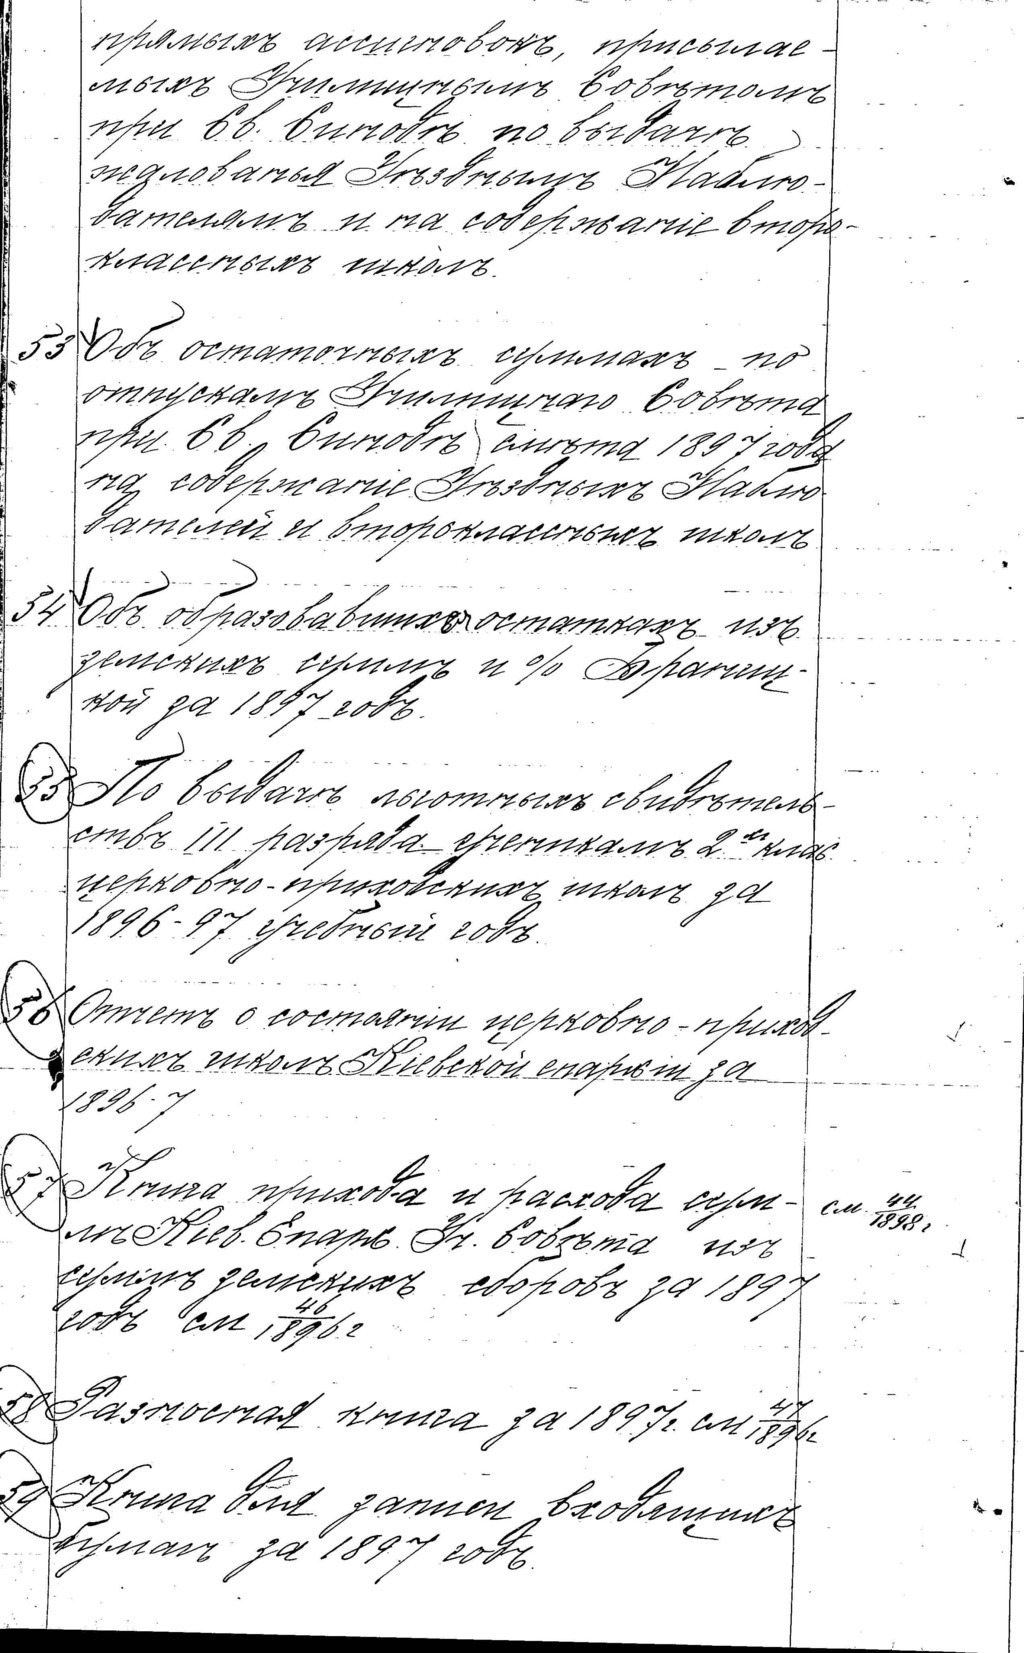 прямыхъ ассигновокъ, присылае-
мыхъ Училищнымъ Совѣтомъ
при Св. Синодѣ по выдачѣ
жалованья Уѣзднымъ Наблю-
дателямъ и на содержаніе второ-
классныхъ школъ.
53 Объ остаточныхъ суммахъ по
отпускамъ Училищнаго Совѣта
при Св. Синодѣ смѣта 1897 года
на содержаніе Уѣздныхъ Наблю
дателей и второклассныхъ школъ
54 Объ образовавшихся остаткахъ изъ
земскихъ суммъ и %
кой за 1897 годъ.
55 По выдачѣ льготныхъ свидѣтель-
ствъ III разряда ученикамъ 2хъ клас.
церковно-приходскихъ школъ за
1896-97 учебный годъ.
56 Отчетъ о состояніи церковно-приход-
скихъ школъ Кіевской епархіи за
1896-7
57 Книга прихода и расхода сум-
мъ Кіев. Епарх. Уч. Совѣта изъ
суммъ земскихъ сборовъ за 1897
годъ см 46/1896 г
см. 44/1898 г
58 Разносная книга за 1897 г. см 47/1896 г
59 Книга для записи входящихъ
бумагъ за 1897 годъ.